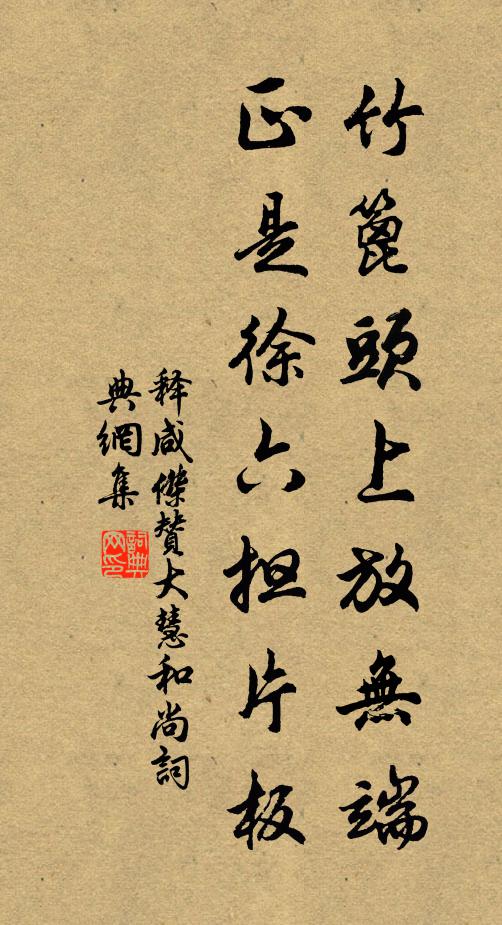 竹篦頭上放無端
正是徐六担片板
释咸傑赞大慧和尚詞
典網集
詞典网印